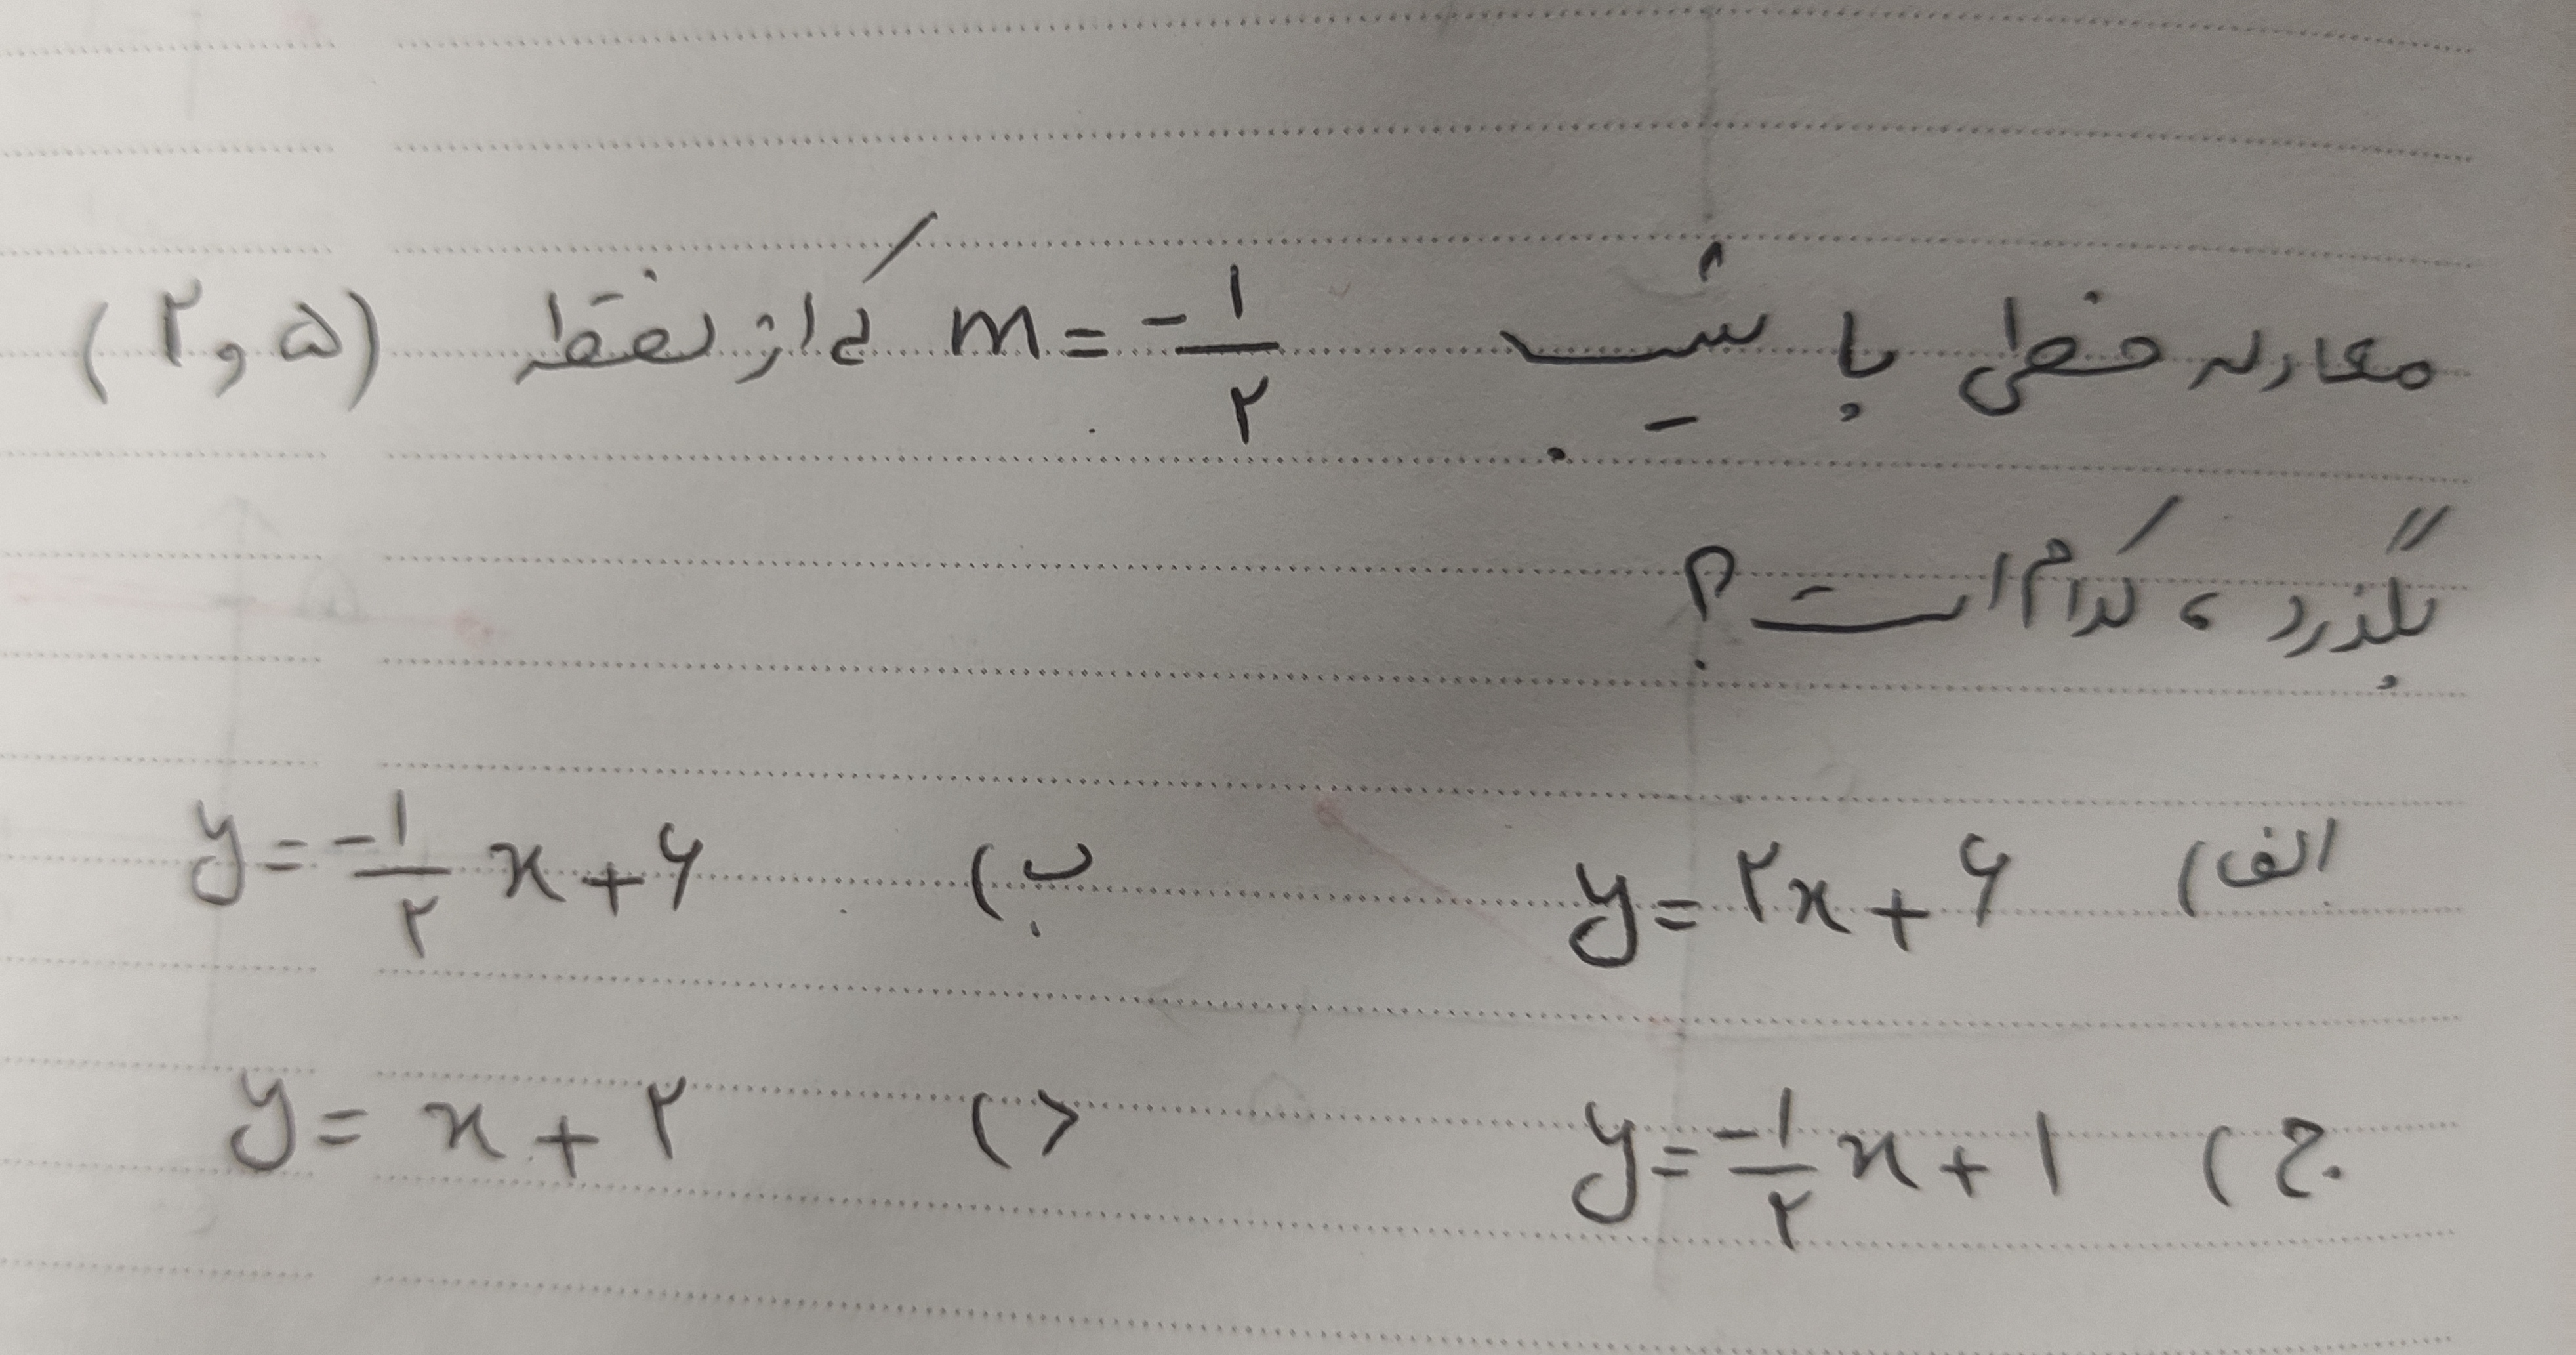 معادله خطی با شیب m = -۱/۲ که از نقطه (۲ و ۵)
بگذرد ، کدام است ؟
الف) y = ۲x + ۶ ب) y = -۱/۲ x + ۶
ج) y = -۱/۲ x + ۱ د) y = x + ۲